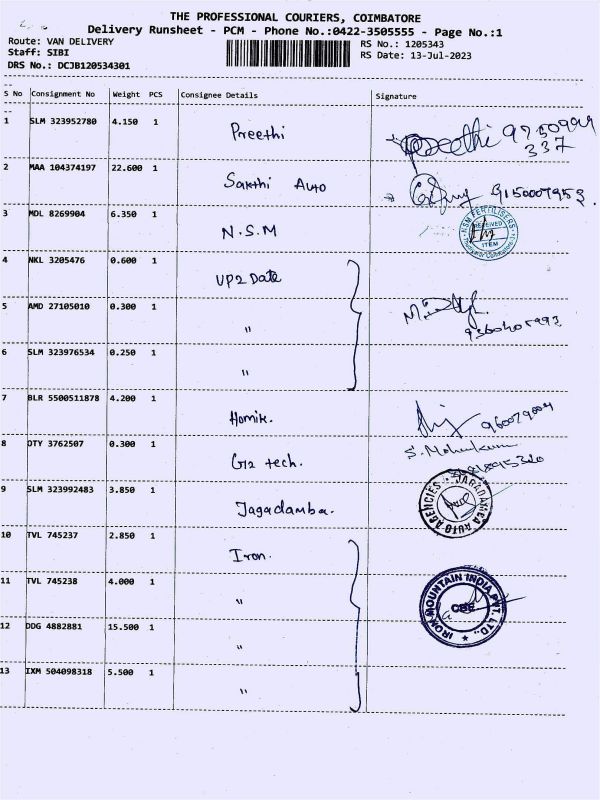 THE PROFESSIONAL COURIERS, COIMBATORE
Delivery Runsheet - PCM - Phone No.:0422-3505555 - Page No.:1
Route: VAN DELIVERY
Staff: SIBI
DRS No.: DCJB120534301
RS No.: 1205343
RS Date: 13-Jul-2023
S No Consignment No Weight PCS Consignee Details Signature
1 SLM 323952780 4.150 1 Preethi Preethi
2 MAA 104374197 22.600 1 Sakthi Auto 9150007953.
3 MDL 8269904 6.350 1 N.S.M NSM FERTILISERS RECEIVED ITEM
4 NKL 3205476 0.600 1 UP2Date
5 AMD 27105010 0.300 1 "
6 SLM 323976534 0.250 1 "
7 BLR 5500511878 4.200 1
8 OTY 3762507 0.300 1 G12 tech.
9 SLM 323992483 3.850 1 Jagadamba. JAGADAMBA AUTO AGENCIES
10 TVL 745237 2.850 1 Iron.
11 TVL 745238 4.000 1 " IRON MOUNTAIN INDIA PVT. LTD. CBE
12 DDG 4882881 15.500 1 "
13 IXM 504098318 5.500 1 "